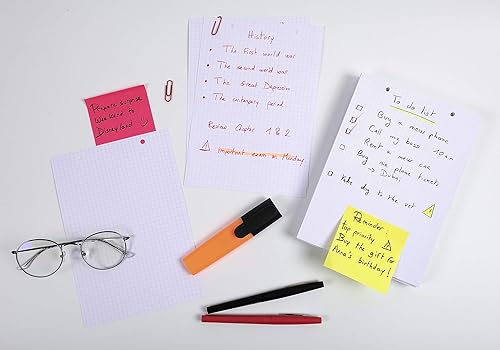 History
• The first world war
• The second world war
• The Great Depression
• The contemporary period
Review Chapter 1 & 2
Important exam on Monday
Prepare surprise
Weekend to
Disneyland
To do list
Buy a new phone
Call my boss 10am
Rent a new car
Buy plane tickets
→ Dubai
Take dog to the vet
Reminder:
top priority
Buy the gift for
Anna's birthday!